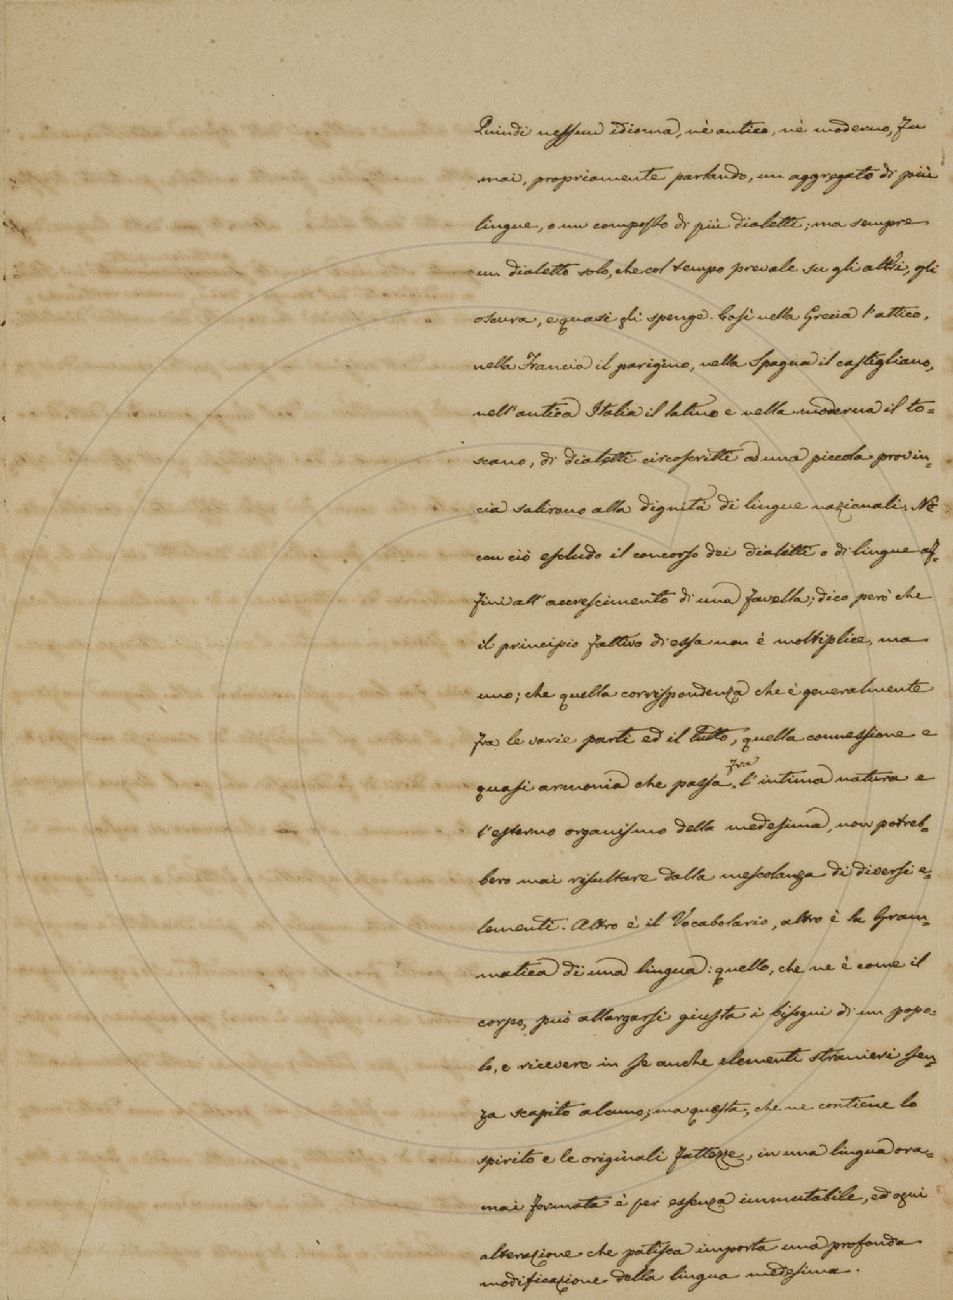 Quindi nessun idioma, nè antico, nè moderno, fu
mai, propriamente parlando, un aggregato di più
lingue, o un composto di più dialetti; ma sempre
un dialetto solo, che col tempo prevale su gli altri, gli
oscura, e quasi gli spenge. Così nella Grecia l'attico,
nella Francia il parigino, nella Spagna il castigliano,
nell'antica Italia il latino e nella moderna il to=
scano, di dialetti circoscritti ad una piccola provin=
cia salirono alla dignità di lingue nazionali. Nè
con ciò escludo il concorso dei dialetti o di lingue af=
fini all'accrescimento di una favella; dico però che
il principio fattivo di essa non è moltiplice, ma
uno; che quella corrispondenza che è generalmente
fra le varie parti ed il tutto, quella connessione e
fra
quasi armonia che passa l'intima natura e
l'esterno organismo della medesima, non potreb=
bero mai risultare dalla mescolanza di diversi e=
lementi. Altro è il Vocabolario, altro è la Gram=
matica di una lingua: quello, che ne è come il
corpo, può allargarsi giusta i bisogni di un popo=
lo, e ricevere in se anche elementi stranieri sen=
za scapito alcuno; ma questa, che ne contiene lo
spirito e le originali fattezze, in una lingua ora=
mai formata è per essenza immutabile, ed ogni
alterazione che patisca importa una profonda
modificazione della lingua medesima.